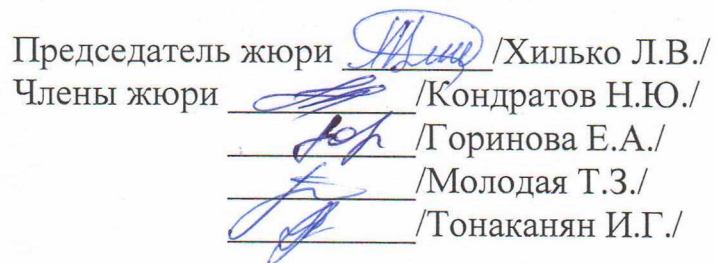 Председатель жюри /Хилько Л.В./
Члены жюри /Кондратов Н.Ю./
/Горинова Е.А./
/Молодая Т.З./
/Тонаканян И.Г./